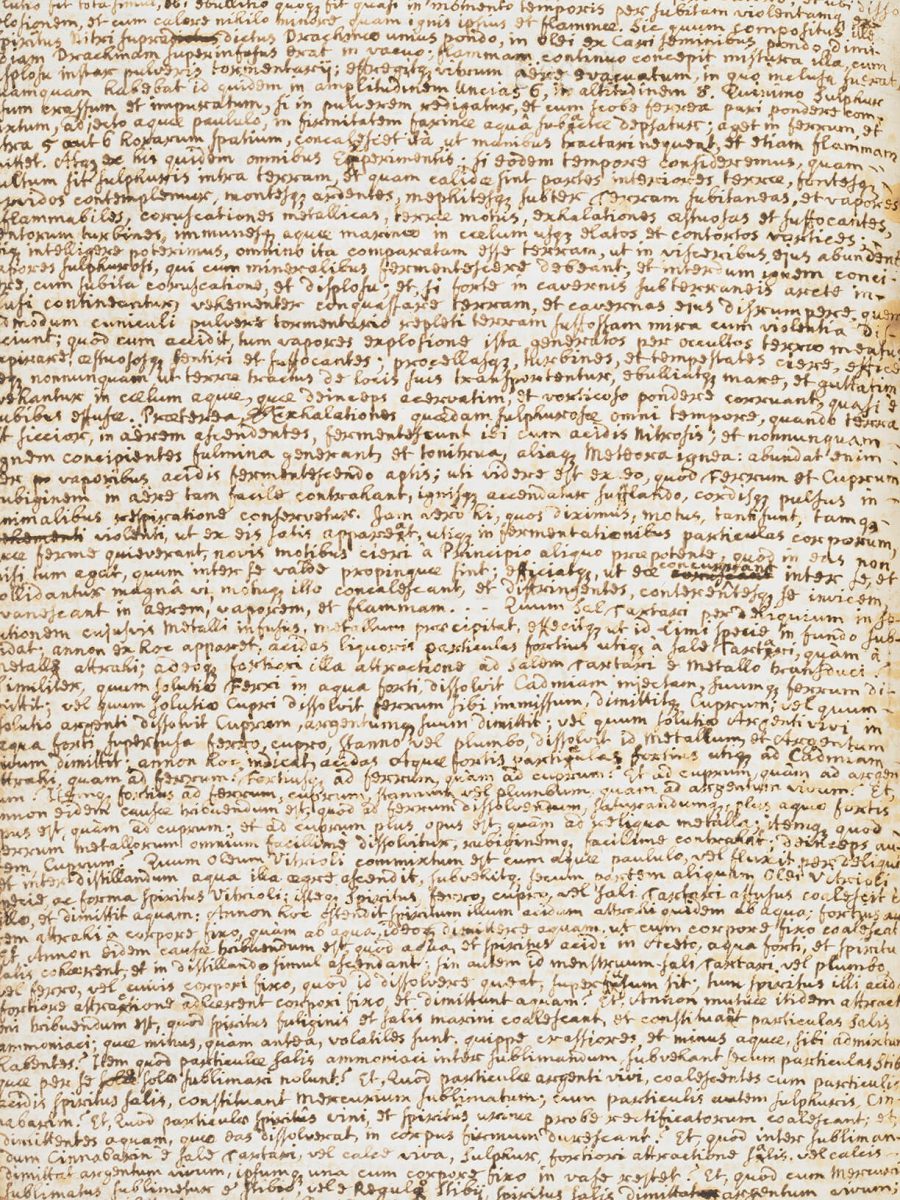 lutio fit tota simul, et ebullitio quoqʒ fit quasi in momento temporis per subitam violentamqʒ
plosionem, et cum calore nihilo minore quam ignis ipsius et flammæ. Sic quum compositus ille
spiritus Nitri supra dictus Drachmæ unius pondo, in olei ex Cari seminibus pondo, dimi-
diam Drachmam superinfusus erat in vacuo; flammam continuo concepit mistura illa, cum
disploso instar pulveris tormentarij; effregitqʒ vitrum aere evacuatum, in quo inclusa fuerat,
tamquam habebat id quidem in amplitudinem uncias 6, in altitudinem 8. Quinimo Sulphur
tum crassum et impuratum, si in pulverem redigatur, et cum scobe ferrea pari pondere com-
ixtum, adjecto aquæ paululo, in firmitatem farinæ aquâ subactæ depsatur; aget in ferrum, et
tra 5 aut 6 horarum spatium, concalescet ita, ut manibus tractari nequeat, et etiam flammam
mittet. Atqʒ ex his quidem omnibus Experimentis; si eôdem tempore consideremus, quam
ultum sit sulphuris intra terram, et quam calidæ sint partes interiores terræ, fontesqʒ
rvidos contemplemur, montesqʒ ardentes, mephitesqʒ subter Terram subitaneas, et vapores
flammabiles, coruscationes metallicas, terræ motus, exhalationes æstuosas et suffocantes,
entorum turbines, immunesqʒ aquæ marinæ in cœlum usqʒ elatos et contortos vortices;
iqʒ intelligere poterimus, omnino ita comparatam esse terram, ut in visceribus ejus abundent
apores sulphurosi, qui cum mineralibus fermentescere debeant, et interdum ignem conci-
re, cum subita coruscatione, et displosu; et, si forte in cavernis subterraneis arcte in-
lusi contineantur, vehementer conquassare terram, et cavernas ejus disrumpere, quem
dmodum cuniculi pulvere tormentario repleti terram suffossam mira cum violentia dis-
ciunt; quod cum accidit, tum vapores explosione ista generatos per occultos terræ meatus
spirare, æstuososqʒ sentiri et suffocantes; procellasqʒ, turbines, et tempestates ciere, effice
eqʒ nonnunquam ut terræ tractus de locis suis transportentur, ebulliatqʒ mare, et guttatim
vehantur in cœlum aquæ, quæ deinceps acervatim, et vorticoso pondere corruant, quasi è
ubibus effusæ. Præterea, Exhalationes quædam sulphurosæ omni tempore, quando terra
t siccior, in aërem ascendentes, fermentescunt ibi cum acidis Nitrosis; et nonnunquam
gnem concipientes fulmina generant, et tonitrua, aliaqʒ Meteora ignea: abundat enim
er vaporibus acidis fermentescendo aptis; uti videre est ex eo, quod Ferrum et Cuprum
ubiginem in aëre tam facile contrahant, ignisqʒ accendatur sufflando, cordisqʒ pulsus in
nimalibus respiratione conservetur. Jam verò hi, quos diximus, motus, tanti sunt, tamqʒ
violenti, ut ex eis satis appareat, utiqʒ in fermentationibus particulas corporum,
uæ ferme quieverant, novis motibus cieri à Principio aliquo præpotente, quod in eas non
nisi tum agat, quum inter se valde propinquæ sint; efficiatqʒ, ut eæ concurrant inter se, et
ollidantur magnâ vi, motuqʒ illo concalescant, et diffringentes, conterentesqʒ se invicem,
vanescant in aërem, vaporem, et flammam. . - - Quum Sal Tartari per deliquium in so-
utionem cujusvis Metalli infusus, metallum præcipitat, effecitqʒ ut id Limi specie in fundo sub-
idat; annon ex hoc apparet, acidas liquoris particulas fortius utiqʒ à Sale Tartari, quam à
metallo attrahi; adeoqʒ fortiori illa attractione ad Salem Tartari è Metallo transduci?
Similiter, quum solutio Ferri in aqua forti, dissolvit Cadmiam injectam, suumqʒ ferrum di-
mittit; vel quum solutio Cupri dissolvit ferrum sibi immissum, dimittitqʒ Cuprum; vel quum
solutio argenti dissolvit Cuprum, argentumqʒ suum dimittit; vel quum solutio Argenti vivi in
aqua forti, superfusa ferro, cupro, stanno vel plumbo, dissolvit id Metallum, et Argentum
vivum dimittit; annon hoc indicat, acidas Aquæ fortis particulas fortius utiqʒ ad Cadmiam
attrahi, quam ad ferrum? Fortiusqʒ ad ferrum, quam ad cuprum? Et ad cuprum, quam ad argen-
um? Itemqʒ fortius ad ferrum, cuprum, stannum, vel plumbum, quam ad argentum vivum? Et,
annon eidem causæ tribuendum est, quod ad ferrum dissolvendum, saturandumqʒ, plus aquæ fortis
pus est, quam ad cuprum; et ad cuprum plus opus est, quam ad reliqua metalla; itemqʒ quod
errum metallorum omnium facillime dissolvitur, rubiginemqʒ facillime contrahat; deinceps au-
em, Cuprum? Quum Oleum Vitrioli commixtum est cum aquæ paululo, vel fluxit per deliqu
et inter distillandum aqua illa ægre ascendit, subvehitqʒ secum partem aliquam Olei Vitrioli
pecie, ac forma spiritus Vitrioli; isteqʒ spiritus, ferro, cupro, vel sali Tartari affusus coalescit c
illo, et dimittit aquam; Annon hoc ostendit, spiritum illum acidum attrahi quidem ab aqua; fortius au-
em attrahi à corpore fixo, quam ab aqua, ideoqʒ dimittere aquam, ut cum corpore fixo coalescat
Et Annon eidem causæ tribuendum est, quod aqua, et spiritus acidi in Aceto, aqua forti, et spiritu
salis cohærent, et in distillando simul ascendant; sin autem id menstruum sali Tartari, vel plumbo,
vel ferro, vel cuivis corpori fixo, quod id dissolvere queat, superfusum sit; tum spiritus illi acid
fortiore attractione adhærent corpori fixo, et dimittunt aquam? Et, Annon mutuæ itidem attract
oni tribuendum est, quod spiritus fuliginis et salis marini coalescant, et constituant particulas Salis
ammoniaci; quæ minus, quam antea, volatiles sunt; quippe crassiores, et minus aquæ, sibi admixtum
habentes? Item quod particulæ salis ammoniaci inter sublimandum, subvehant secum particulas Stib
quæ per se solæ sublimari nolunt? Et, Quod particulæ argenti vivi, coalescentes cum particulis
acidis spiritus salis, constituant Mercurium Sublimatum; cum particulis autem sulphuris, Cin-
nabarim? Et, Quod particulæ spiritus vini, et spiritus urinæ probe rectificatorum coalescant; et,
dimittentes aquam, quæ eas dissolverat, in corpus firmum durescant? Et, quod inter subliman-
dum Cinnabarin è sale Tartari, vel calce viva, Sulphur, fortiori attractione salis, vel calcis
dimittat argentum vivum, ipsumqʒ una cum corpore fixo in vase restet? Et, quod cum Mercuri
sublimatus sublimetur è Stibio, vel è Regulo Stibij, spiritus salis dimittat argentum vivum;